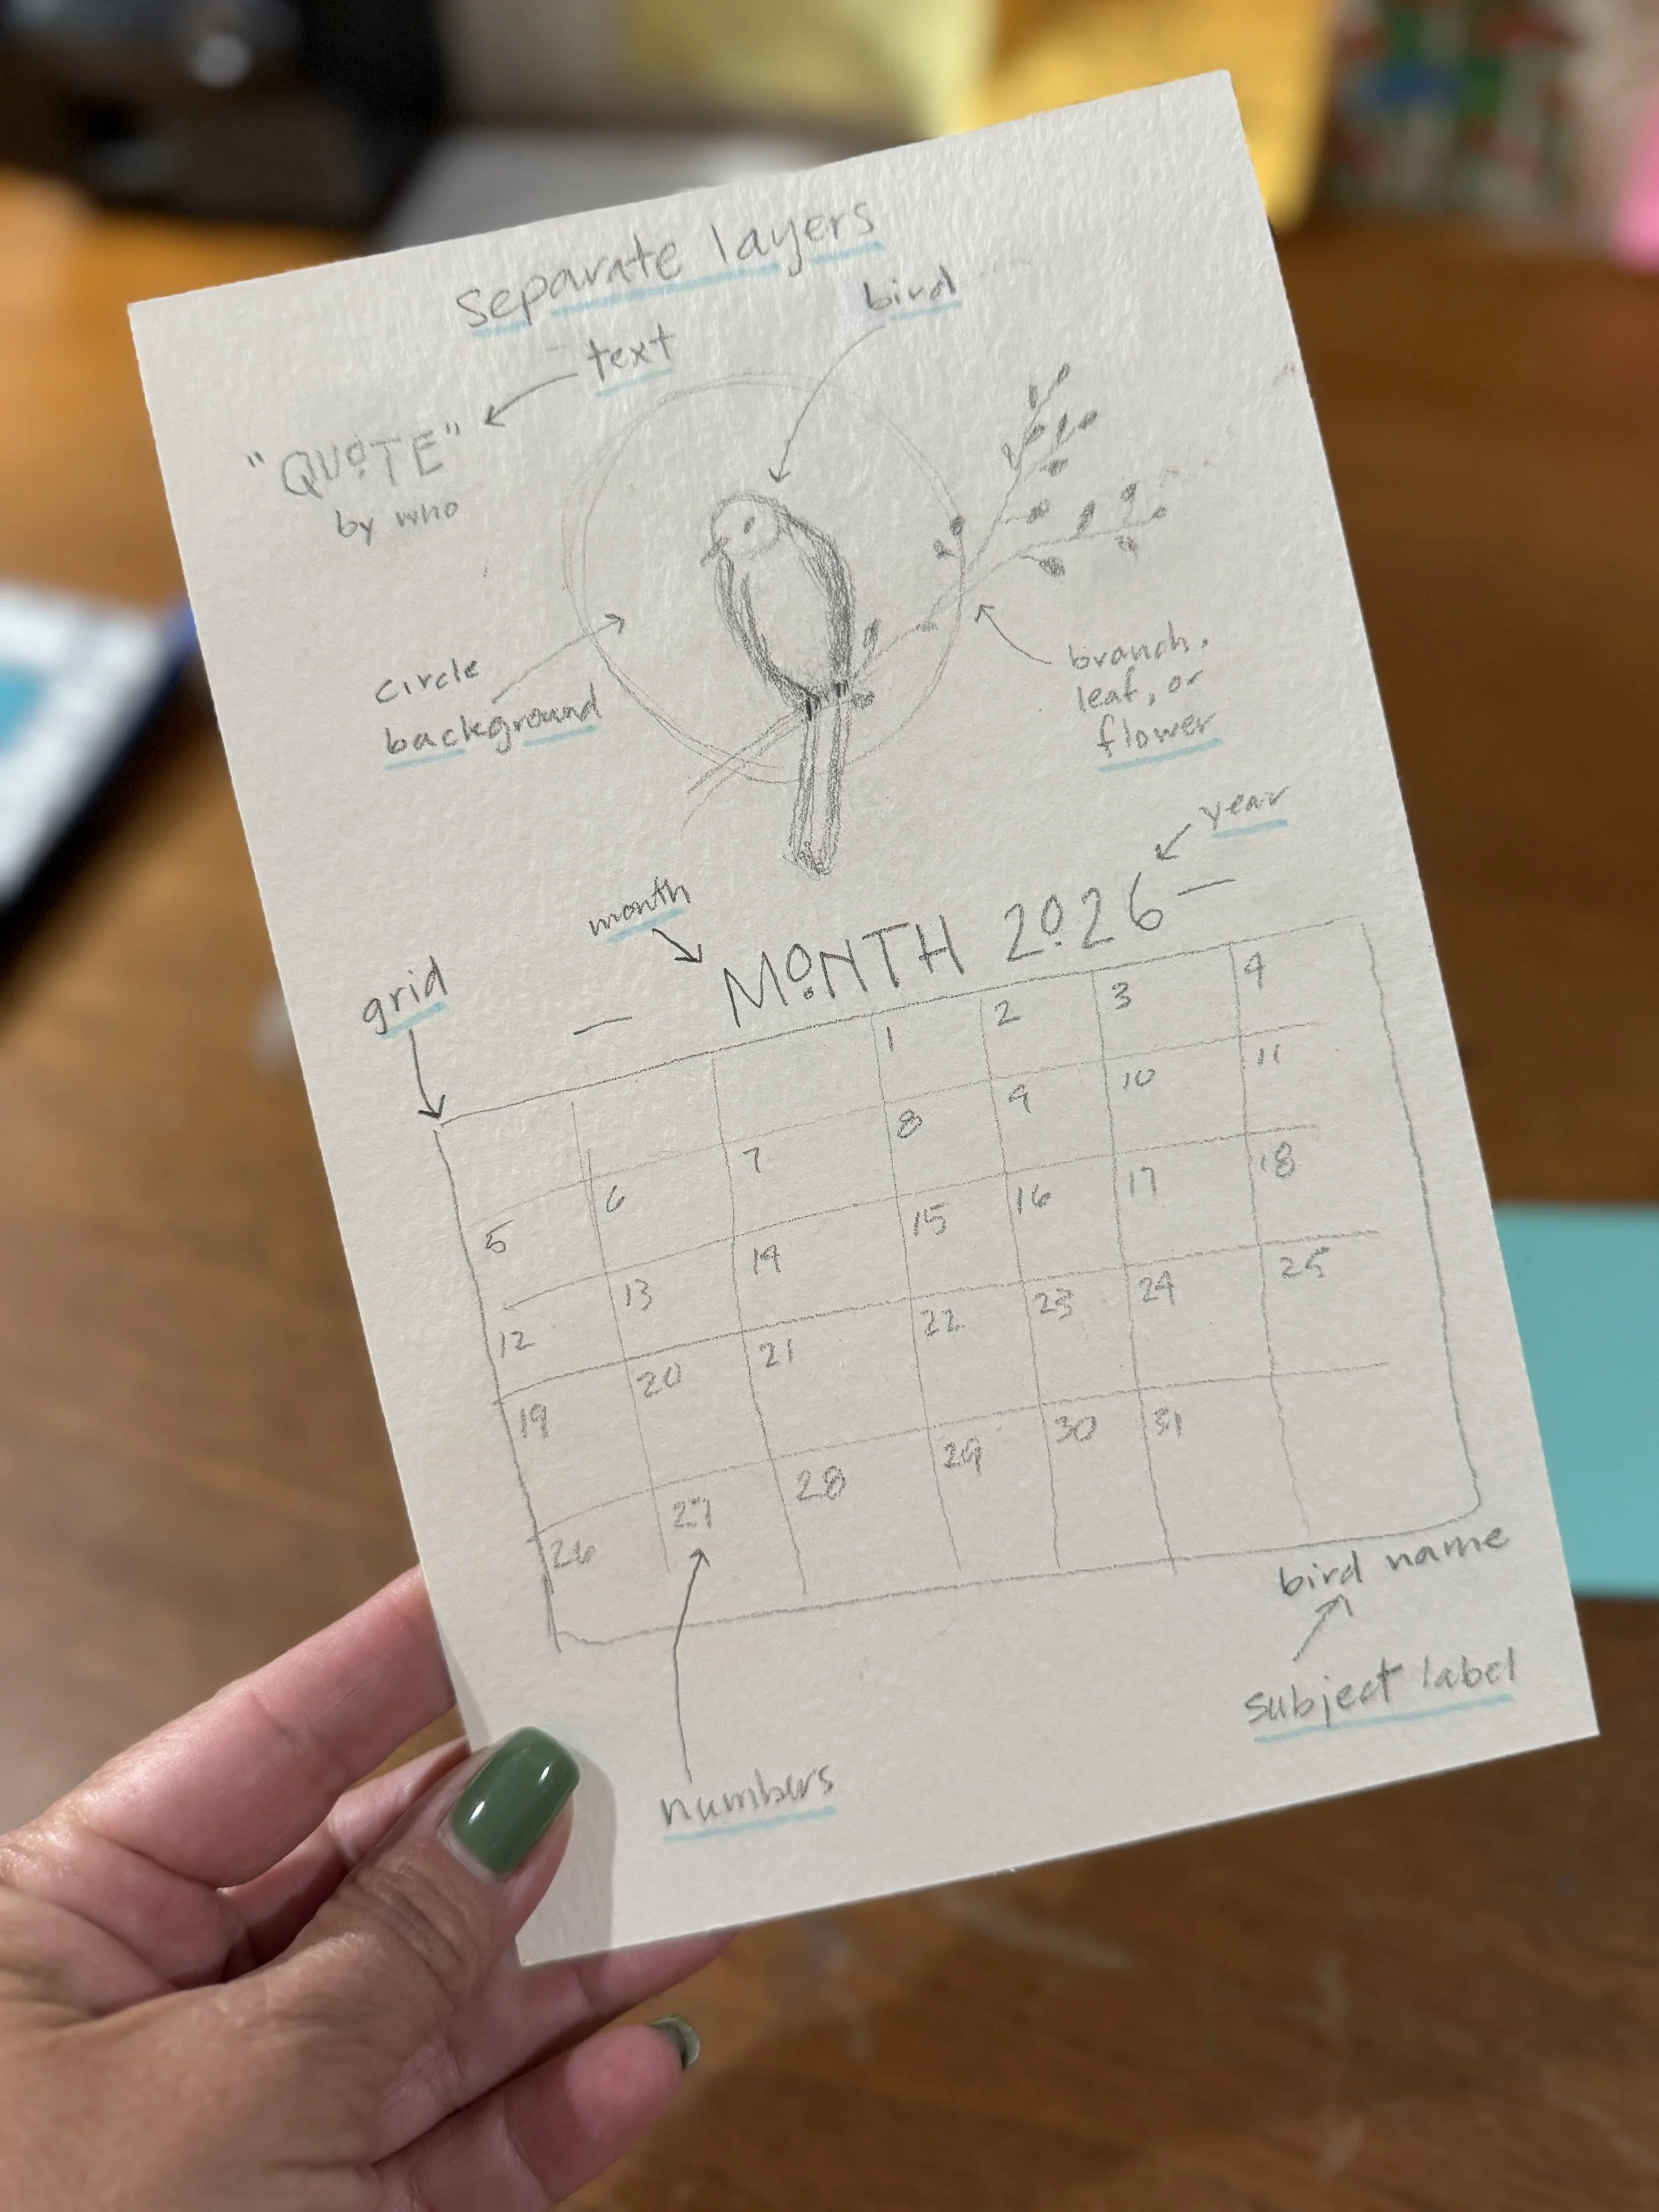 separate layers
text
bird
"QUOTE"
by who
circle
background
branch,
leaf, or
flower
year
month
MONTH 2026
grid
1 2 3 4
5 6 7 8 9 10 11
12 13 14 15 16 17 18
19 20 21 22 23 24 25
26 27 28 29 30 31
bird name
subject label
numbers